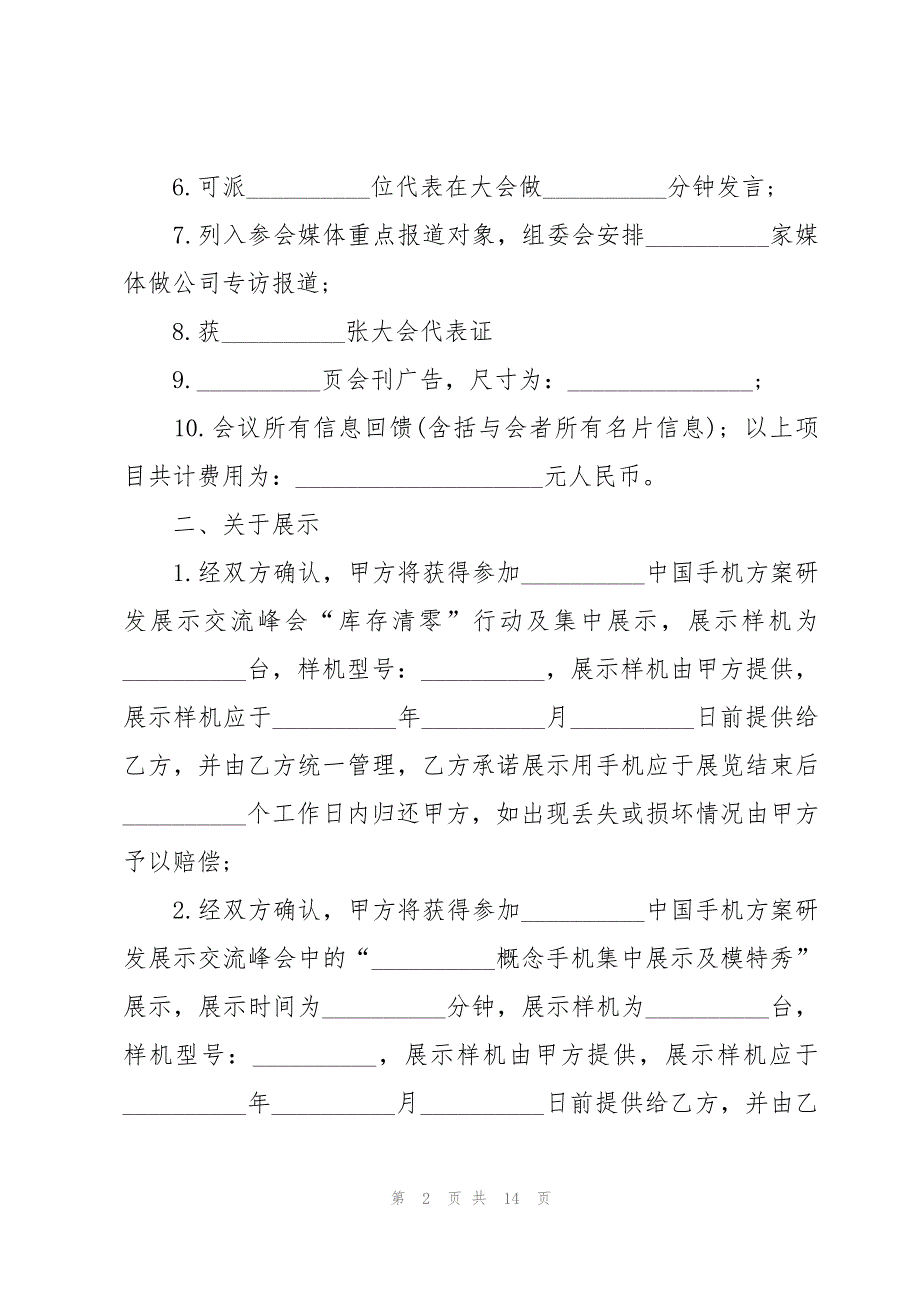 6.可派__________位代表在大会做__________分钟发言;
7.列入参会媒体重点报道对象，组委会安排__________家媒
体做公司专访报道;
8.获__________张大会代表证
9.__________页会刊广告，尺寸为：_______________;
10.会议所有信息回馈(含括与会者所有名片信息)；以上项
目共计费用为：____________________元人民币。
二、关于展示
1.经双方确认，甲方将获得参加__________中国手机方案研
发展示交流峰会“库存清零”行动及集中展示，展示样机为
__________台，样机型号：__________，展示样机由甲方提供，
展示样机应于__________年__________月__________日前提供给
乙方，并由乙方统一管理，乙方承诺展示用手机应于展览结束后
__________个工作日内归还甲方，如出现丢失或损坏情况由甲方
予以赔偿;
2.经双方确认，甲方将获得参加__________中国手机方案研
发展示交流峰会中的“__________概念手机集中展示及模特秀”
展示，展示时间为__________分钟，展示样机为__________台，
样机型号：__________，展示样机由甲方提供，展示样机应于
__________年__________月__________日前提供给乙方，并由乙
第 2 页 共 14 页